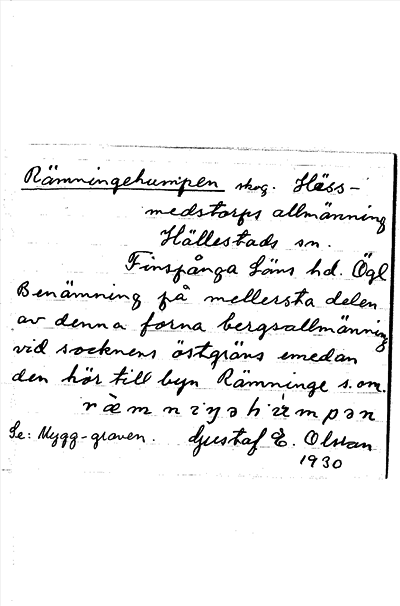 Rämningehumpen skog. Häss-
medstorps allmänning
Hällestads sn.
Finspånga Läns hd. Ögl
Benämning på mellersta delen
av denna forna bergsallmänning
vid socknens östgräns emedan
den hör till byn Rämninge s.om.
Se: Mygg-graven. Gustaf E. Olsson
1930